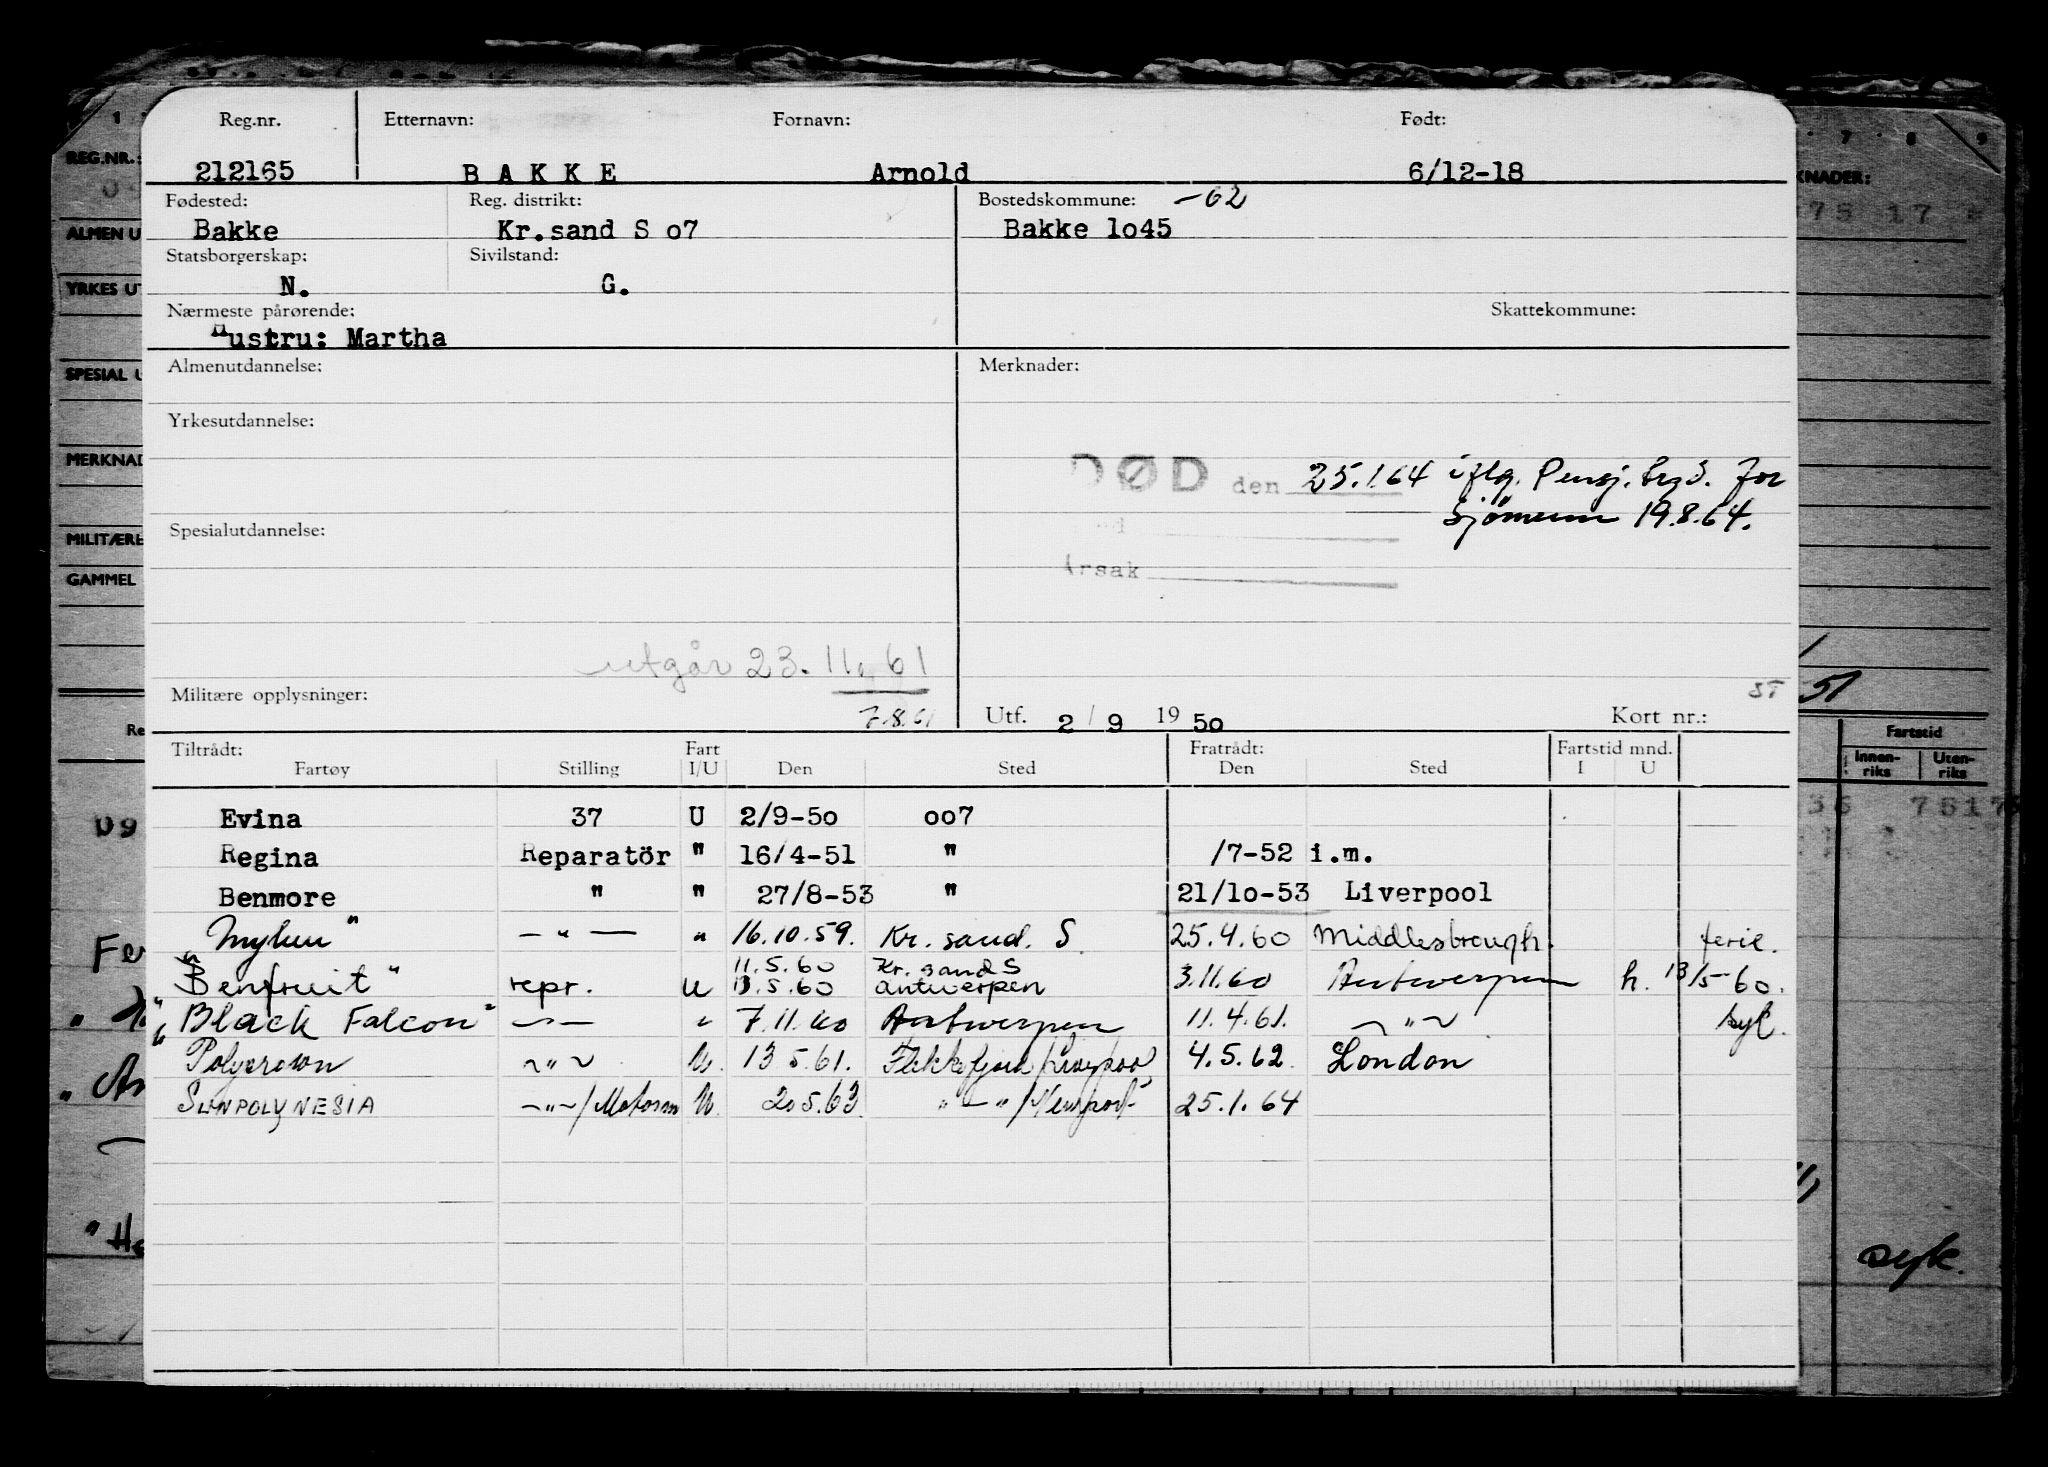 Reg.nr. Etternavn: Fornavn: Født:
212165 B A K K E Arnold 6/12-18
Fødested: Reg. distrikt: Bostedskommune: -62
Bakke Kr.sand S o7 Bakke 1o45
Statsborgerskap: Sivilstand:
N. G.
Nærmeste pårørende: Skattekommune:
Hustru: Martha
Almenutdannelse: Merknader:
Yrkesutdannelse:
DØD den 25.1.64 iflg. Pensj. tryd. for
Sjømenn 19.8.64.
Spesialutdannelse:
Årsak
utgår 23.11.61
Militære opplysninger: 7.8.61 Utf. 2/9 1950 Kort nr.:
ST
51
Tiltrådt: Fart Fratrådt: Fartstid mnd.
Fartøy Stilling I/U Den Sted Den Sted I U
Evina 37 U 2/9-5o oo7
Regina Reparatör " 16/4-51 " /7-52 i.m.
Benmore " " 27/8-53 " 21/1o-53 Liverpool
"Myken" — " — " 16.10.59. Kr. sand. S 25.4.60 Middlesbrough. ferie.
11.5.60 Kr. sand S
"Benfruit" repr. U 13.5.60 Antwerpen 3.11.60 Antwerpen h. 13/5-60.
"Black Falcon" —"— " 7.11.60 Antwerpen 11.4.61. —"— syk.
Polycrown —"— U. 13 5.61. Flekkefjord/Liverpool 4.5.62. London
SUNPOLYNESIA —"—/Motorm U. 20.5.63. " — "/Newport 25.1.64
REG.NR.:
ALMEN U
YRKES UT
SPESIAL U
MERKNAD
MILITÆRE
GAMMEL
KNADER:
Fartstid
Innen-riks Uten-riks
syk.